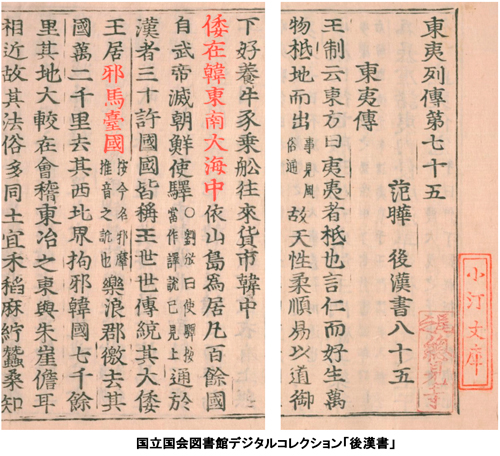 東夷列傳第七十五
范曄 後漢書八十五
東夷傳
王制云東方曰夷夷者柢也言仁而好生萬
物柢地而出事見風俗通故天性柔順易以道御
小汀文庫
總見寺
下好養牛豕乘舩往來貨市韓中
倭在韓東南大海中依山島為居凡百餘國
自武帝滅朝鮮使驛○劉攽曰使驛按當作譯說已見上通於
漢者三十許國國皆稱王世世傳統其大倭
王居邪馬臺國按今名邪摩推音之訛也樂浪郡徼去其
國萬二千里去其西北界拘邪韓國七千餘
里其地大較在會稽東冶之東與朱崖儋耳
相近故其法俗多同土宜禾稻麻紵蠶桑知
国立国会図書館デジタルコレクション「後漢書」